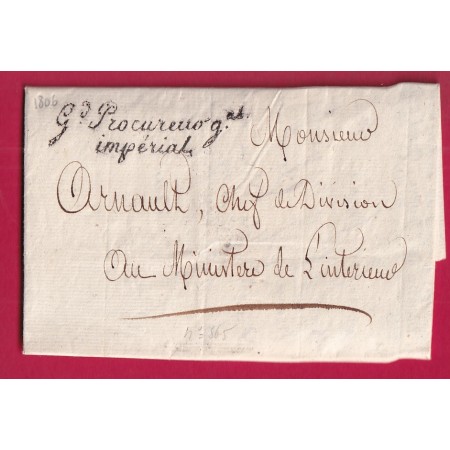 1806
Gd. Procureur gal.
impérial
Monsieur
Arnault, Chef de Division
Au Ministere de L'interieur
n= 365